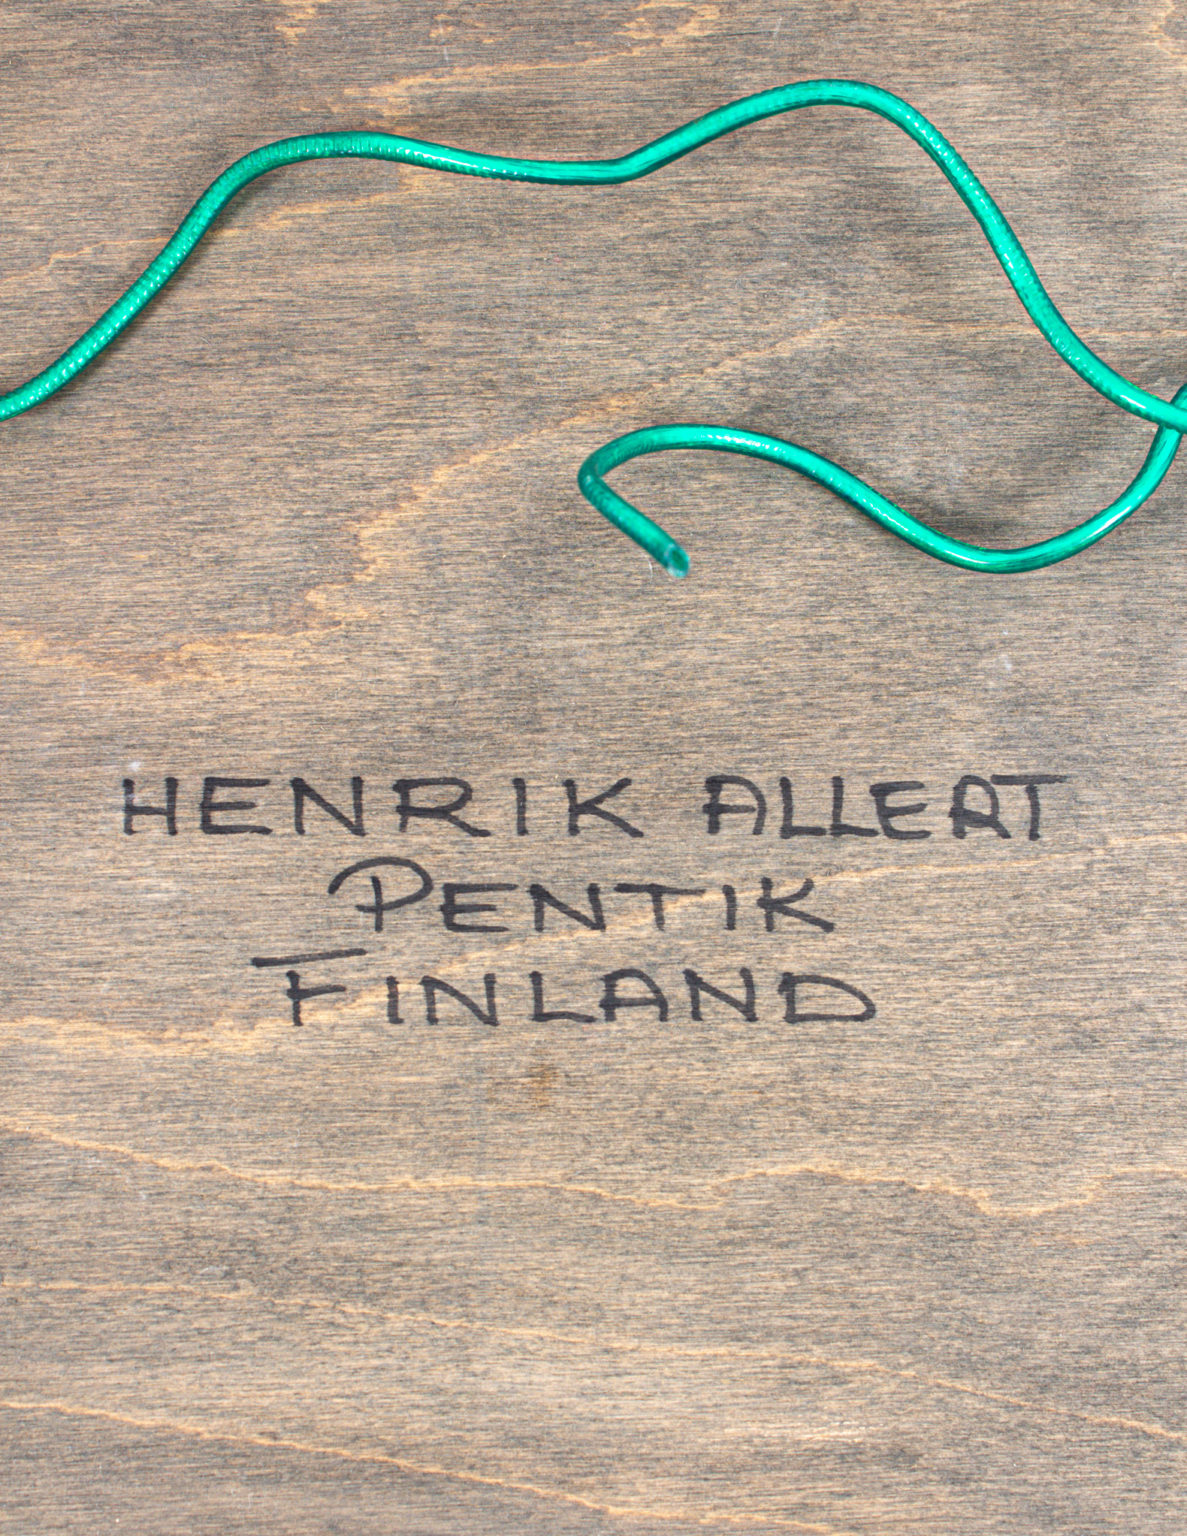 HENRIK ALLERT
PENTIK
FINLAND